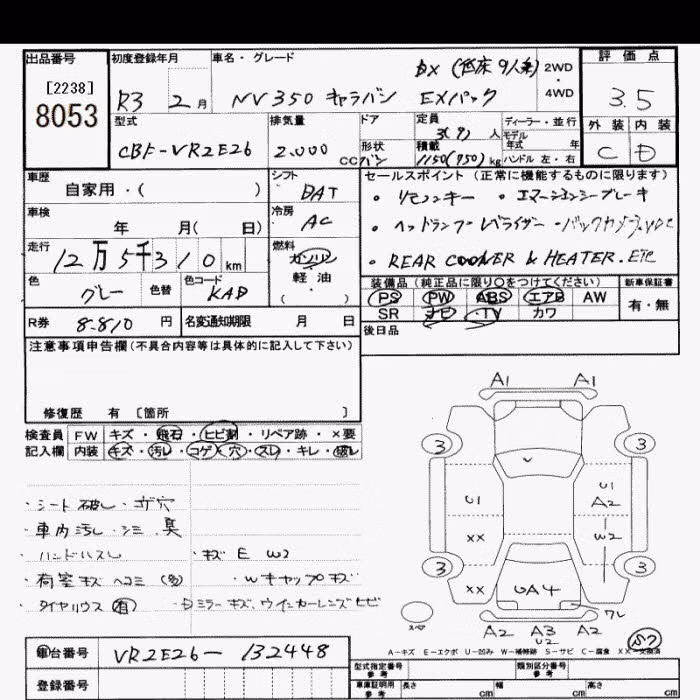 出品番号
[2238]
8053
初度登録年月
R3 2月
車名・グレード
DX (低床 9人乗)
NV350 キャラバン EXパック
2WD
・
4WD
評価点
3.5
外装 内装
C D
型式
CBF-VR2E26
排気量
2.000 CC
ドア
形状
バン
定員
3(9) 人
積載
1150(950) kg
ディーラー・並行
モデル
年式 年
ハンドル 左・右
車歴
自家用・( )
シフト
DAT
車検
年 月( 日)
冷房
AC
走行
12万5千310 km
燃料
ガソリン
軽・油
・
( )
色
グレー
色替
色コード
KAD
R券 8-810 円
名変通知期限 月 日
セールスポイント(正常に機能するものに限ります)
・リモコンキー ・エマージェンシーブレーキ
・ヘッドランプレベライザー ・バックカメラ.VDC
・REAR COOLER & HEATER.ETC
装備品(純正品に限り○をつけてください)
新車保証書
PS PW ABS エアB AW
SR ナビ ・TV カワ
有・無
後日品
注意事項申告欄(不具合内容等は具体的に記入して下さい)
修復歴 有 [箇所 ]
検査員
記入欄
FW キズ・飛石・ヒビ割・リペア跡・×要
内装 キズ・汚レ・コゲ・穴・スレ・キレ・破レ
・シート破レ・コゲ穴
・車内汚レ・シミ・臭
・ハンドルスレ
・キズ E W2
・荷室キズ ヘコミ(多)
・Wキャップキズ
・タイヤハウス(有)
・Dミラーキズ、ウインカーレンズヒビ
A1 A1
3 3
U1
U1
A2
XX
W2
3 3
XX
UA4
ワレ
スペ
A2 A3 A2
U2
A-キズ E-エクボ U-凹み W-補修跡 S-サビ C-腐食 XX-交換済
車台番号 VR2E26-132448
登録番号
型式指定番号
参考
類別区分番号
参考
車庫証明用
参考
長さ cm
幅 cm
高さ cm